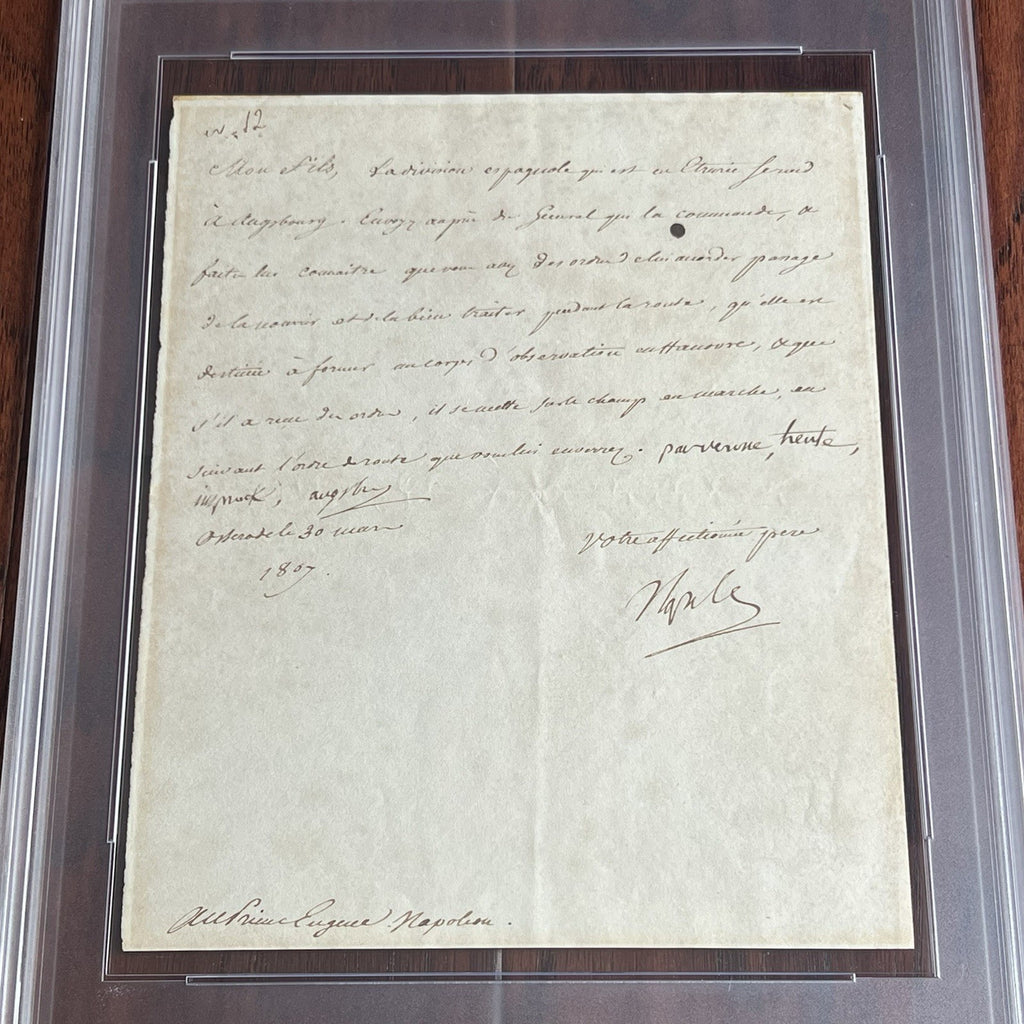 n. 12
Mon fils, La division espagnole qui est en Etrurie se rend
à Augsbourg. Envoyez auprès du Général qui la commande, &
faites lui connaitre que vous avez des ordres de lui accorder passage
de la nourrir et de la bien traiter pendant la route, qu'elle est
destinée à former un corps d'observation en Hanovre, & que
s'il a reçu des ordres, il se mette sur le champ en marche, en
suivant l'ordre de route que vous lui enverrez. par verone, trente,
inspruck, augsbg
Osterode le 30 mars
1807.
Votre affectionné pere
Napole
Au Prince Eugene Napoleon.